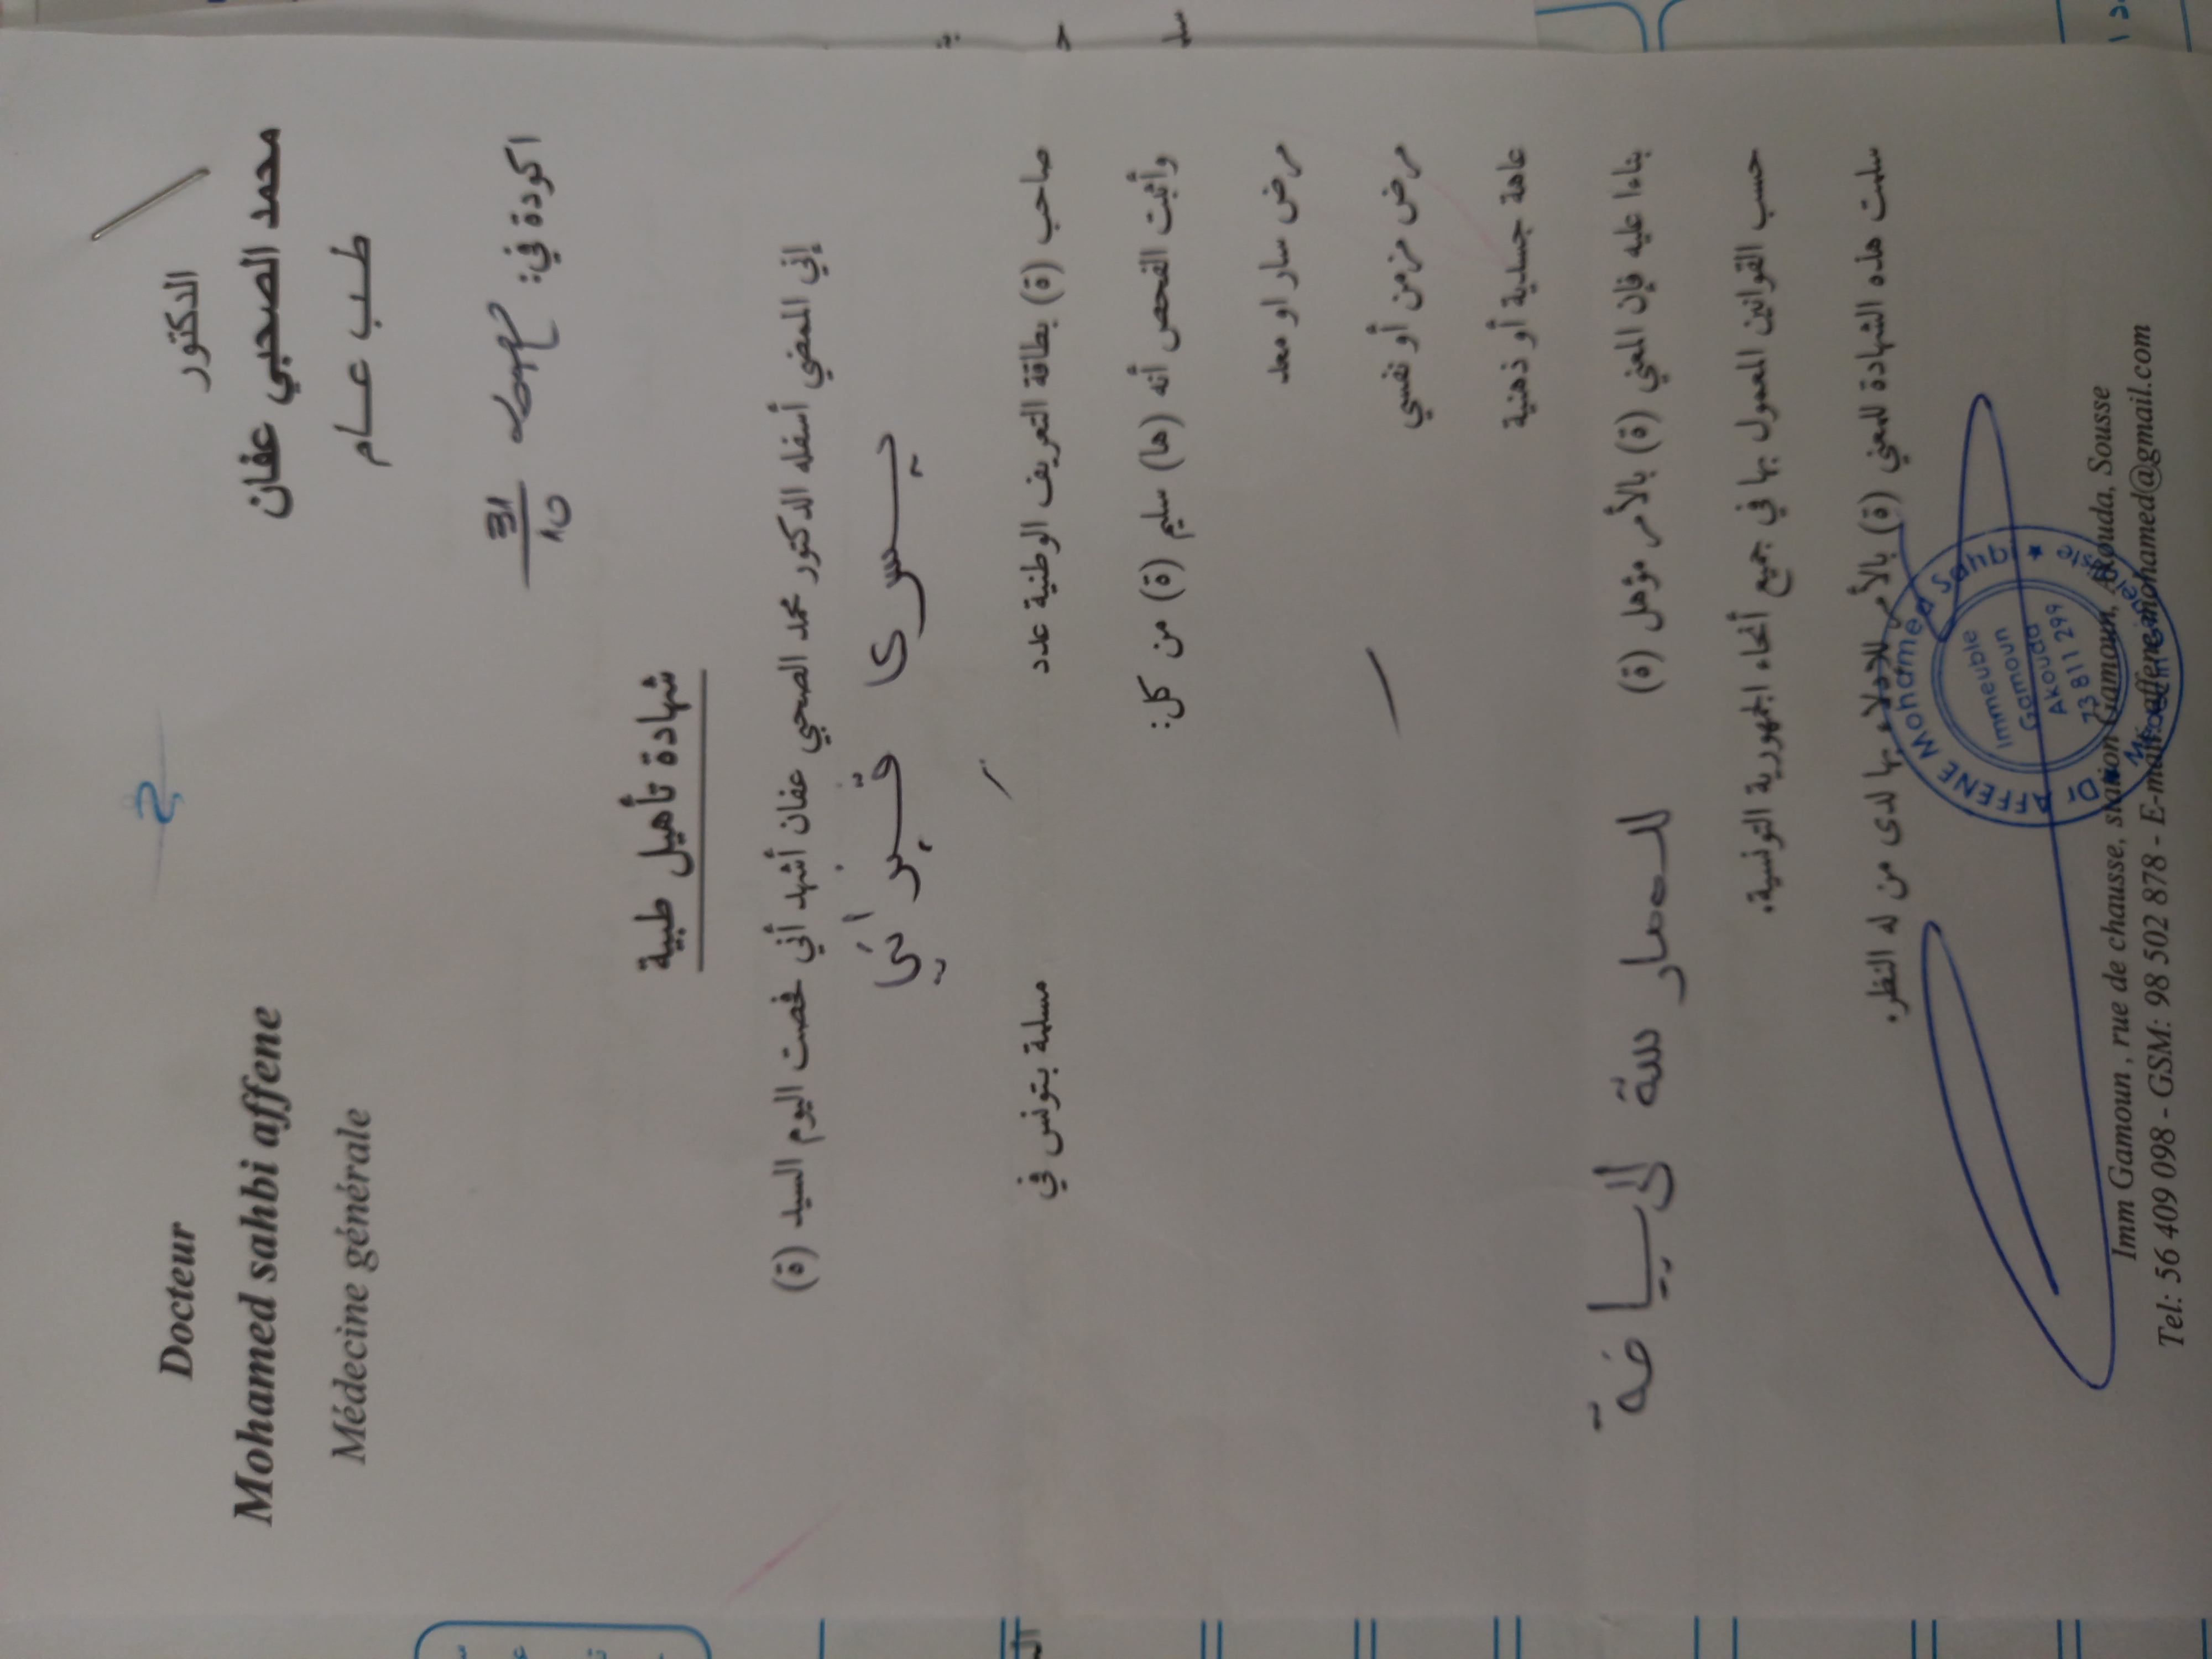 Docteur
الدكتور
Mohamed sahbi affene
محمد الصحبي عفان
Médecine générale
طب عام
اكودة في:
شهادة تأهيل طبية
إني الممضي أسفله الدكتور محمد الصحبي عفان أشهد أني فحصت اليوم السيد (ة)
يسرى
صاحب (ة) بطاقة التعريف الوطنية عدد / مسلمة بتونس في
وأثبت الفحص أنه (ها) سليم (ة) من كل:
مرض سار او معد
مرض مزمن أو نفسي
عاهة جسدية أو ذهنية
بناءا عليه فإن المعني (ة) بالأمر مؤهل (ة) لممارسة الرياضة
حسب القوانين المعمول بها في جميع أنحاء الجمهورية التونسية.
سلمت هذه الشهادة للمعني (ة) بالأمر للإدلاء بها لدى من له النظر.
Dr AFFENE Mohamed Sahbi
Immeuble
Gamoun
Akouda
73 811 299
Imm Gamoun , rue de chausse, station Gamoun, Akouda, Sousse
Tel: 56 409 098 - GSM: 98 502 878 - E-mail: affenemohamed@gmail.com